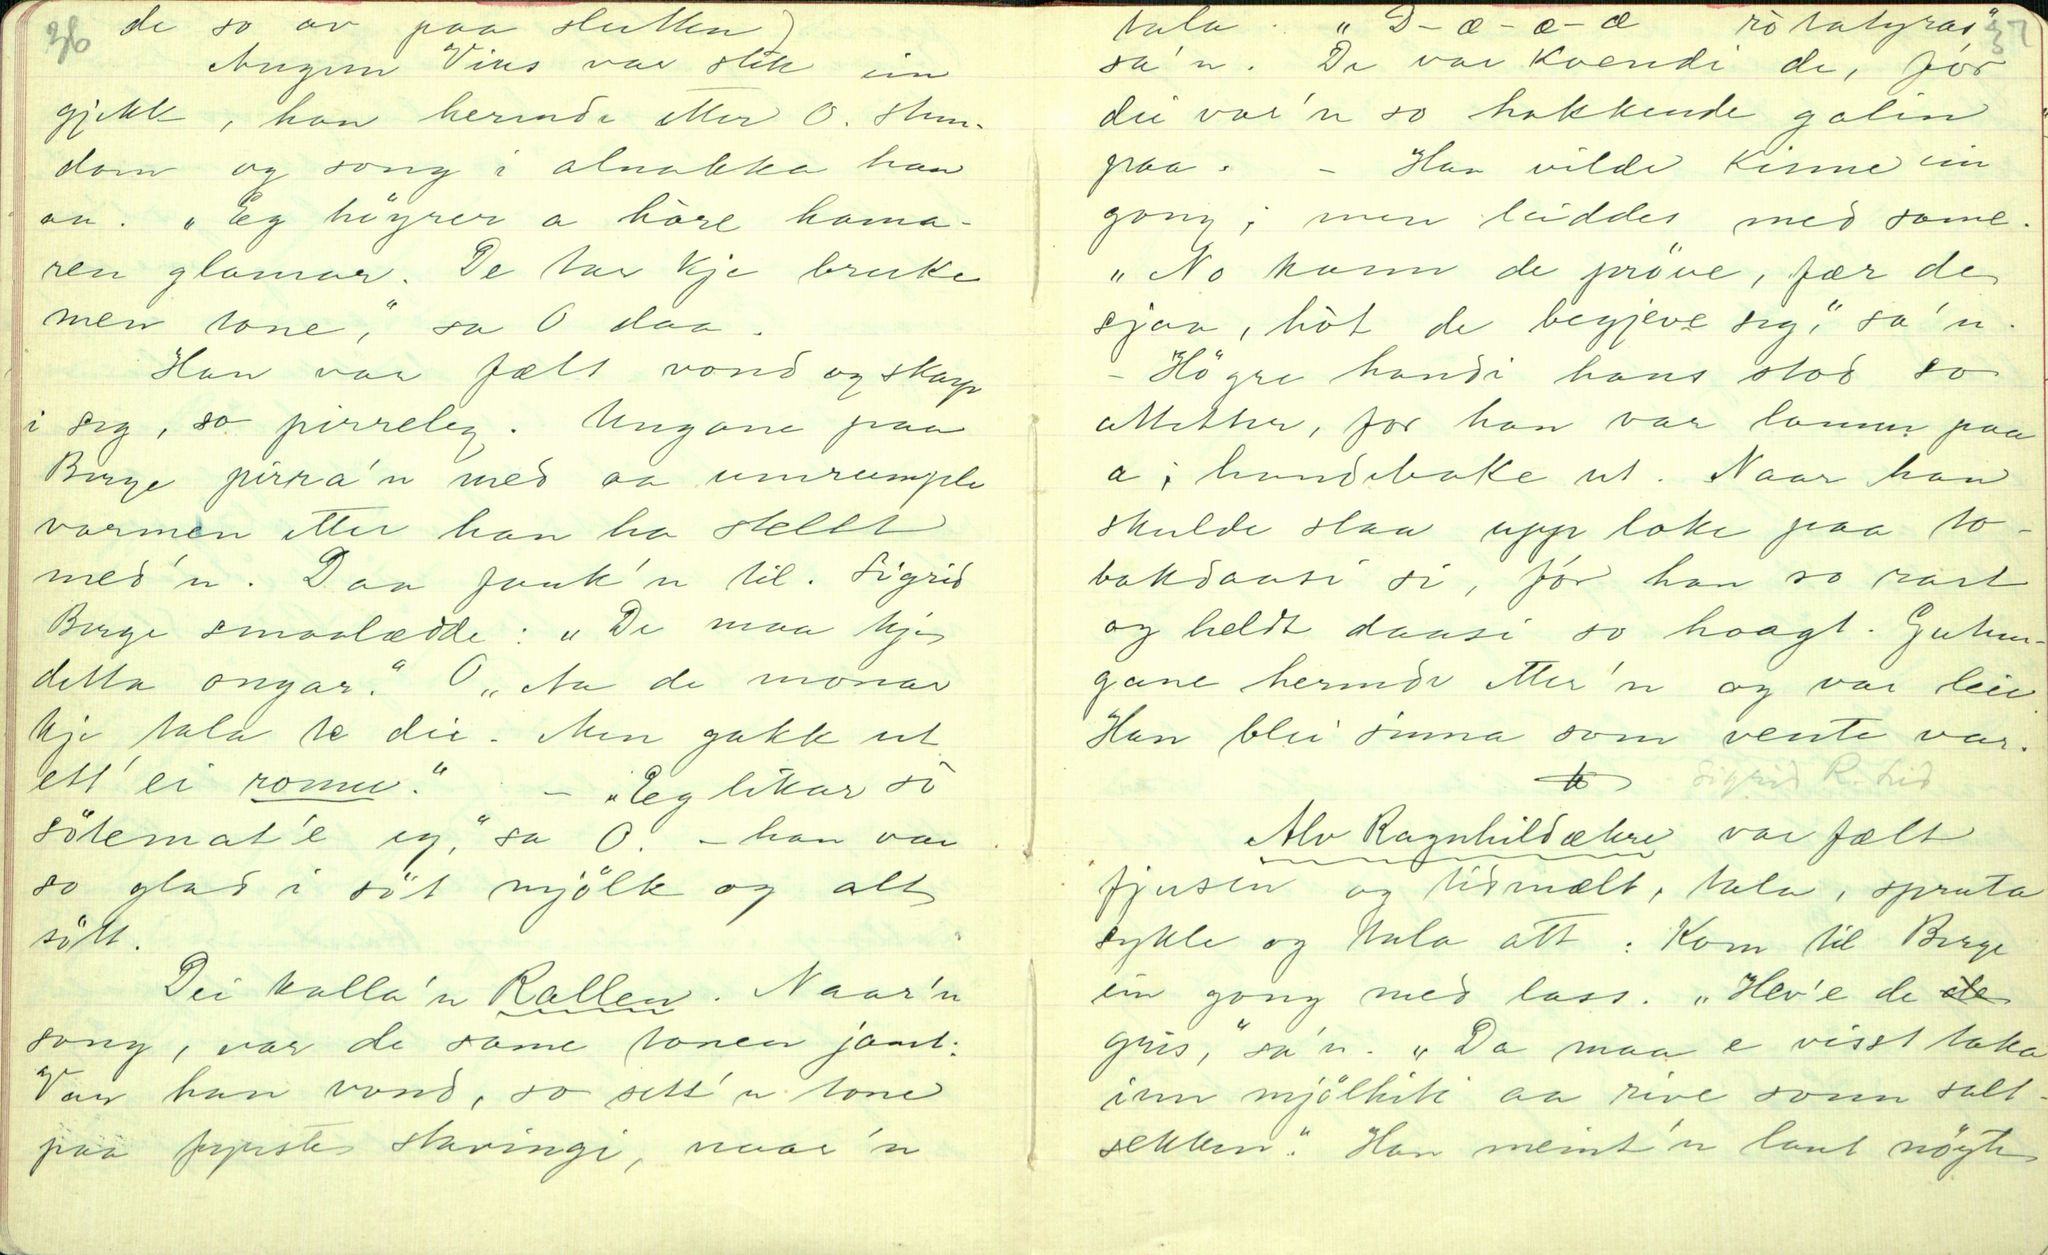 36
de so av paa slutten)
Augun Vius var slik ein
gjekk, han hermde etter O. stun-
dom og song i alnakka han
au. „Eg höyrer a hòre hama-
ren glamar. De tar kje bruke
men tone," sa O daa.
Han var fælt vond og skarp
i seg, so pirreleg. Ungane paa
Berge pirra'n med aa umrumple
varmen etter han ha stellt
med'n. Daa fauk'n til. Sigrid
Berge smaalædde: „De maa kje
detta ongar." O „Aa de monar
kje tala te dei. Men gakk ut
ett' ei romu." – „Eg likar sò
sötemat'e eg," sa O. – han var
so glad i söt mjölk og alt
sött.
Dei kalla'n Rallen. Naar'n
song, var de same tonen jamt.
Var han vond, so sett'n tone
paa fyrste stavingi, naar'n
37
tala. „D-æ-æ-æ rötatyras"
sa'n. De var kvendi de, for
dei var'n so hakkende galin
paa. – Han vilde kinne ein
gong; men leiddes med same.
„No kann de pröve, fær de
sjaa, hòt de begjeve seg," sa'n.
– Högre handi hans stod so
attetter, for han var lamm paa
a; handebake ut. Naar han
skulde slaa upp loke paa to-
bakdaasi si, fór han so rart
og heldt daasi so haagt. Gutun-
gane hermde etter'n og var leie
Han blei sinna som vente var.
Sigrid R.
Alv Ragnhildækre var fælt
fjusen og tidmælt, tala, spruta
sykle og tala att. Kom til Berge
ein gong med lass. „Hev'e de
gris," sa'n. „Da maa e visst taka
inn mjölkiti aa rive sonn salt-
sekken." Han meint'n laut nögte